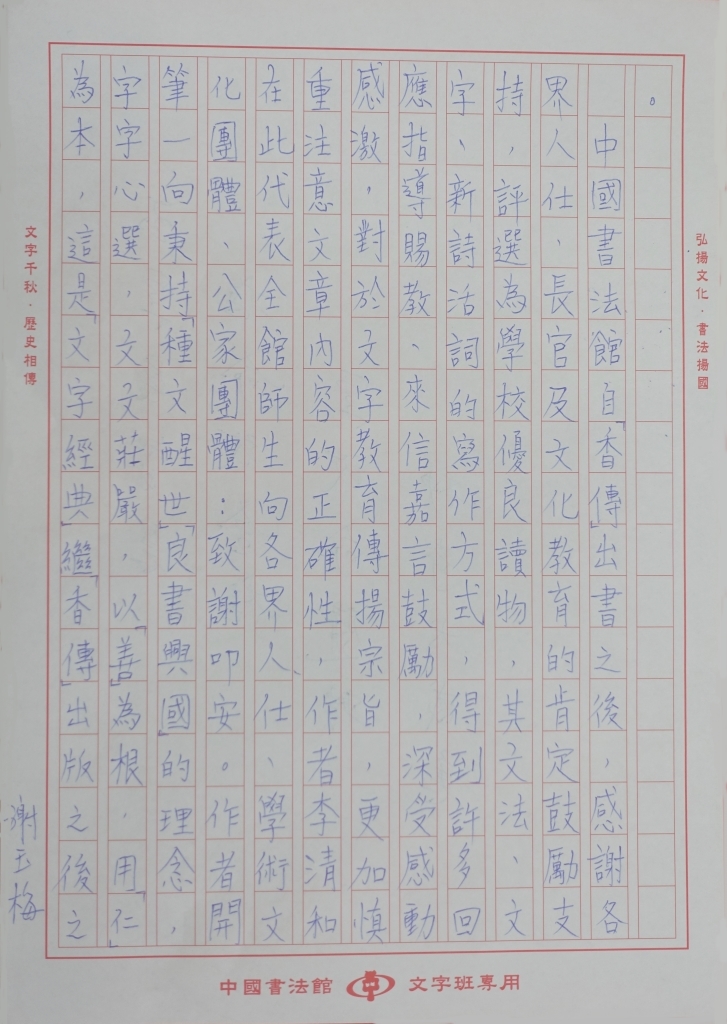 。
中國書法館自「香傳」出書之後，感謝各
界人仕、長官及文化教育的肯定鼓勵支
持，評選為學校優良讀物，其文法、文
字、新詩活詞的寫作方式，得到許多回
應指導賜教、來信嘉言鼓勵，深受感動
感激，對於文字教育傳揚宗旨，更加慎
重注意文章內容的正確性，作者李清和
在此代表全館師生向各界人仕、學術文
化團體、公家團體：致謝叩安。作者開
筆一向秉持「種文醒世」「良書興國」的理念，
字字心選，文文莊嚴，以「善」為根，用「仁」
為本，這是「文字經典」繼「香傳」出版之後之
謝玉梅
弘揚文化·書法揚國
文字千秋·歷史相傳
中國書法館 文字班專用